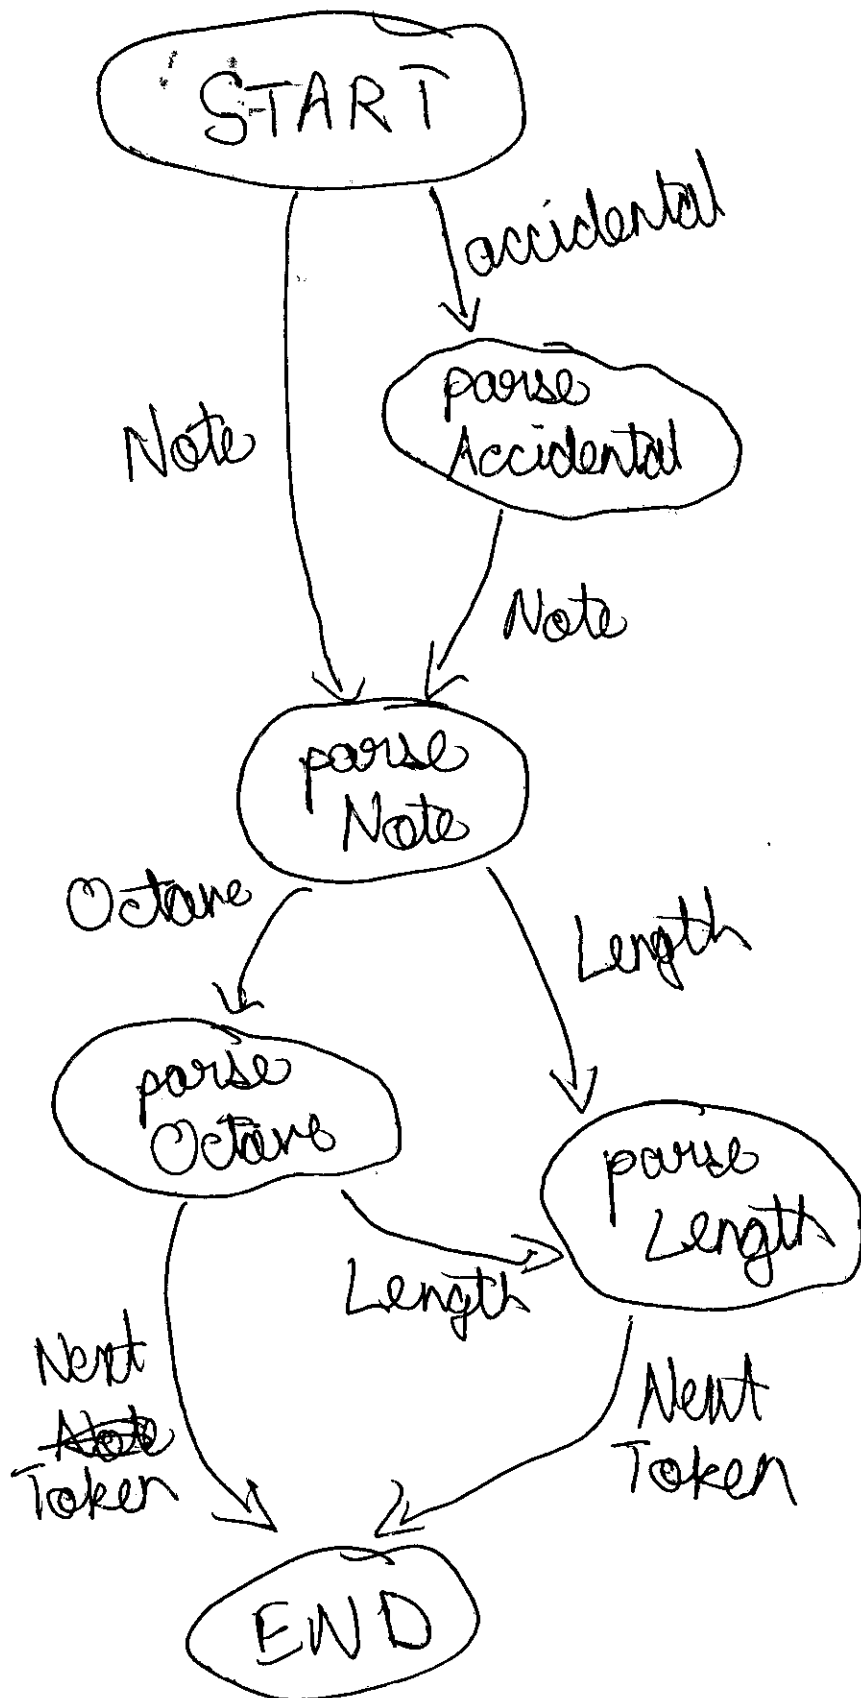 START
accidental
parse
Accidental
Note
Note
parse
Note
Octave
Length
parse
Octave
parse
Length
Length
Next
Note
Token
Next
Token
END